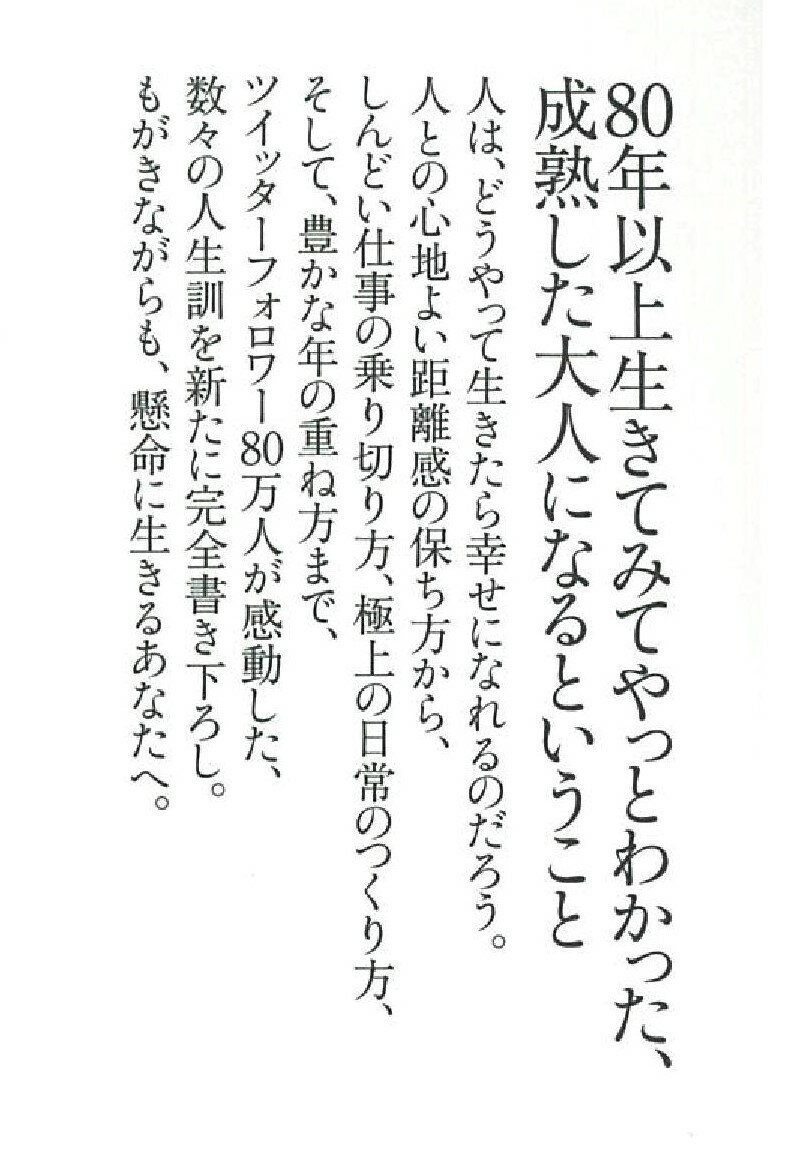 80年以上生きてみてやっとわかった、
成熟した大人になるということ
人は、どうやって生きたら幸せになれるのだろう。
人との心地よい距離感の保ち方から、
しんどい仕事の乗り切り方、極上の日常のつくり方、
そして、豊かな年の重ね方まで、
ツイッターフォロワー80万人が感動した、
数々の人生訓を新たに完全書き下ろし。
もがきながらも、懸命に生きるあなたへ。